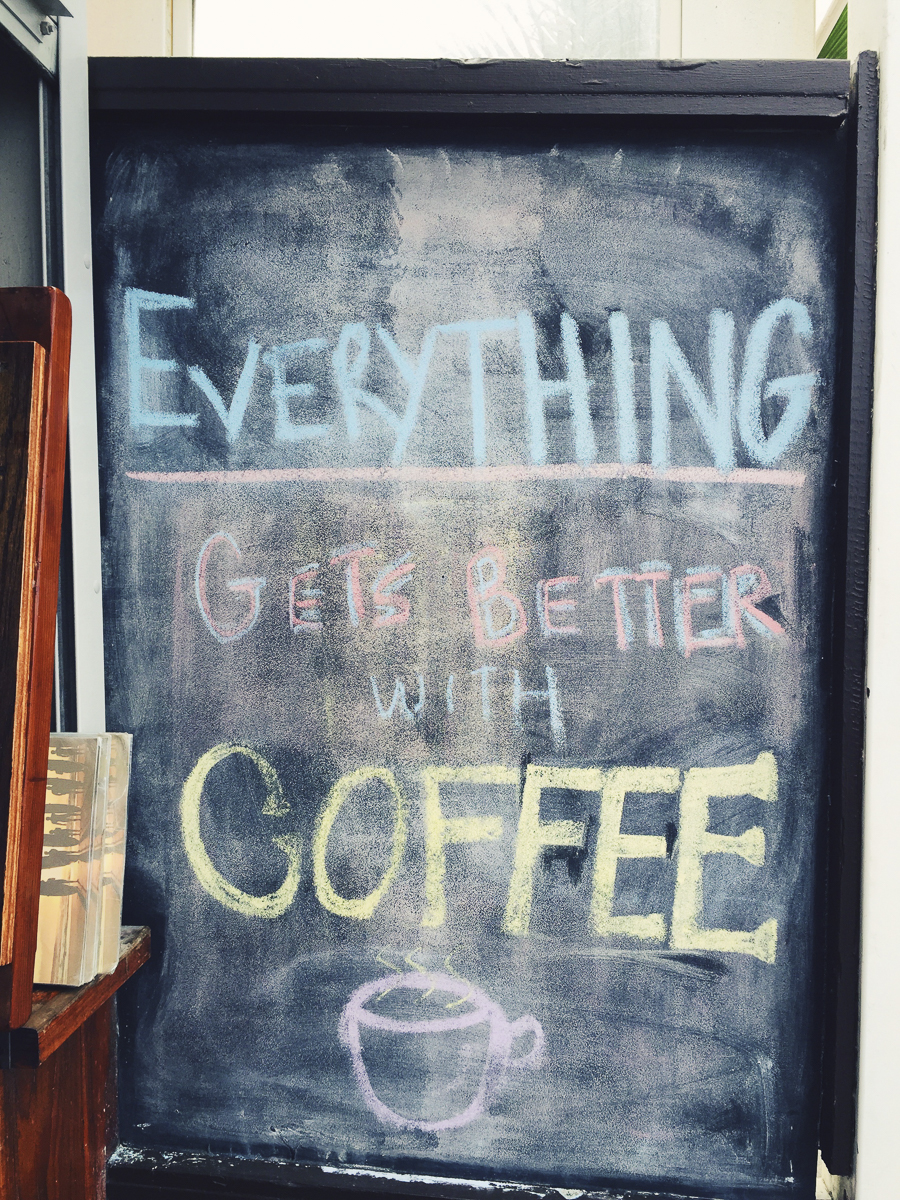 EVERYTHING
GETS BETTER
WITH
COFFEE